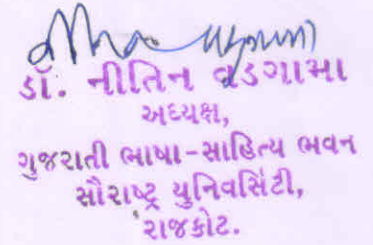 ડૉ. નીતિન વડગામા
અધ્યક્ષ,
ગુજરાતી ભાષા-સાહિત્ય ભવન
સૌરાષ્ટ્ર યુનિવર્સિટી,
રાજકોટ.